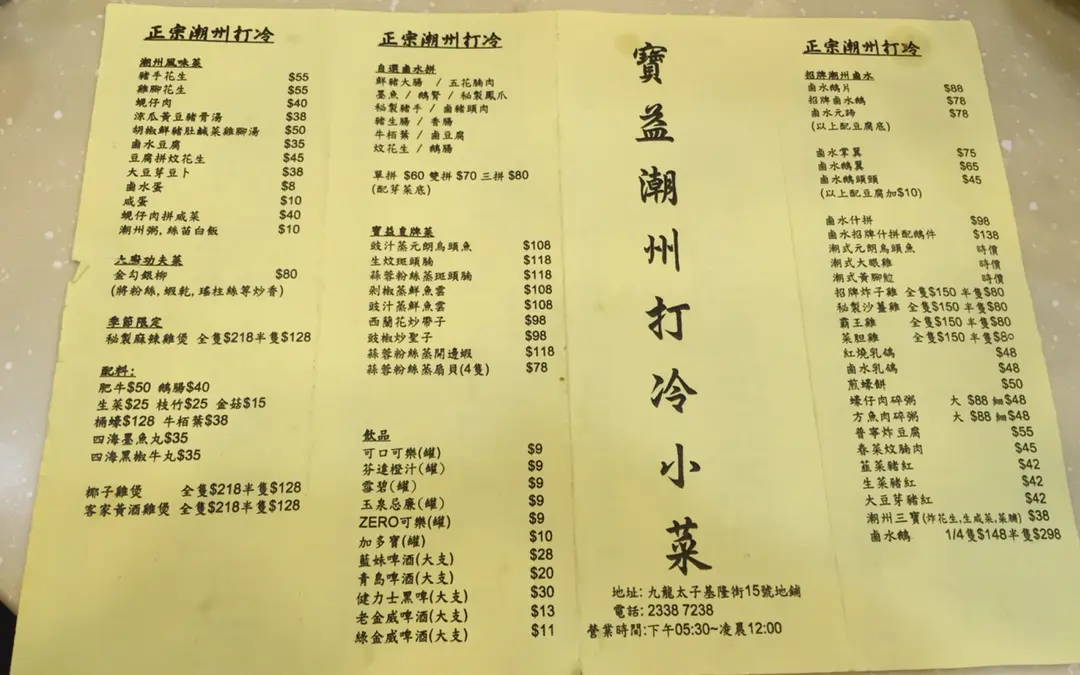 正宗潮州打冷
潮州風味菜
豬手花生 $55
雞腳花生 $55
蜆仔肉 $40
涼瓜黃豆豬骨湯 $38
胡椒鮮豬肚鹹菜雞腳湯 $50
鹵水豆腐 $35
豆腐拼炆花生 $45
大豆芽豆卜 $38
鹵水蛋 $8
咸蛋 $10
蜆仔肉拼咸菜 $40
潮州粥,絲苗白飯 $10
功夫菜
金勾銀柳 $80
(將粉絲,蝦乾,瑤柱絲等炒香)
季節限定
秘製麻辣雞煲 全隻$218半隻$128
配料:
肥牛$50 鵝腸$40
生菜$25 枝竹$25 金菇$15
桶蠔$128 牛栢葉$38
四海墨魚丸$35
四海黑椒牛丸$35
椰子雞煲 全隻$218半隻$128
客家黃酒雞煲 全隻$218半隻$128
正宗潮州打冷
自選鹵水拼
鮮豬大腸 / 五花腩肉
墨魚 / 鵝腎 / 秘製鳳爪
秘製豬手 / 鹵豬頭肉
豬生腸 / 香腸
牛栢葉 / 鹵豆腐
炆花生 / 鵝腸
單拼 $60 雙拼 $70 三拼 $80
(配芽菜底)
寶益皇牌菜
豉汁蒸元朗烏頭魚 $108
生炆斑頭腩 $118
蒜蓉粉絲蒸斑頭腩 $118
剁椒蒸鮮魚雲 $108
豉汁蒸鮮魚雲 $108
西蘭花炒帶子 $98
豉椒炒聖子 $98
蒜蓉粉絲蒸開邊蝦 $118
蒜蓉粉絲蒸扇貝(4隻) $78
飲品
可口可樂(罐) $9
芬達橙汁(罐) $9
雪碧(罐) $9
玉泉忌廉(罐) $9
ZERO可樂(罐) $9
加多寶(罐) $10
藍妹啤酒(大支) $28
青島啤酒(大支) $20
健力士黑啤(大支) $30
老金威啤酒(大支) $13
綠金威啤酒(大支) $11
寶益潮州打冷小菜
地址: 九龍太子基隆街15號地鋪
電話: 2338 7238
營業時間:下午05:30~凌晨12:00
正宗潮州打冷
招牌潮州鹵水
鹵水鵝片 $88
招牌鹵水鵝 $78
鹵水元蹄 $78
(以上配豆腐底)
鹵水掌翼 $75
鹵水鵝翼 $65
鹵水鵝頭頸 $45
(以上配豆腐加$10)
鹵水什拼 $98
鹵水招牌什拼配鵝件 $138
潮式元朗烏頭魚 時價
潮式大眼雞 時價
潮式黃腳鱲 時價
招牌炸子雞 全隻$150 半隻$80
秘製沙薑雞 全隻$150 半隻$80
霸王雞 全隻$150 半隻$80
菜胆雞 全隻$150 半隻$80
紅燒乳鴿 $48
鹵水乳鴿 $48
煎蠔餅 $50
蠔仔肉碎粥 大 $88 細$48
方魚肉碎粥 大 $88 細$48
普寧炸豆腐 $55
春菜炆腩肉 $45
韮菜豬紅 $42
生菜豬紅 $42
大豆芽豬紅 $42
潮州三寶(炸花生,生咸菜,菜脯) $38
鹵水鵝 1/4隻$148半隻$298